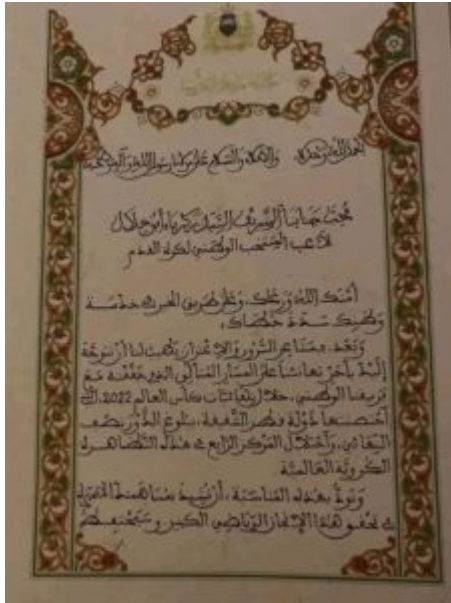 الحمد لله وحده، والصلاة والسلام على مولانا رسول الله وآله وصحبه
محب جنابنا الشريف السيد زكرياء أبو خلال
لاعب المنتخب الوطني لكرة القدم
أمنك الله ورعاك، وعلى طريق الخير في خدمة
وطنك سدد خطاك،
وبعد، فبمشاعر السرور والاعتزاز يطيب لنا أن نتوجه
إليك بأحر تهانئنا على المسار المثالي الذي حققته مع
فريقنا الوطني، خلال نهائيات كأس العالم 2022، التي
احتضنتها دولة قطر الشقيقة، ببلوغ الدور نصف
النهائي، واحتلال المركز الرابع في هذه التظاهرة
الكروية العالمية.
ونود بهذه المناسبة، أن نشيد بمساهمتك
في تحقيق هذا الإنجاز الرياضي الكبير